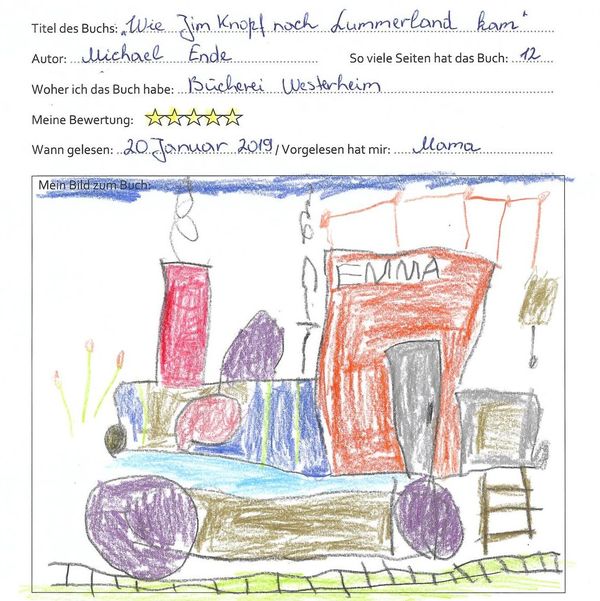 Titel des Buchs: „Wie Jim Knopf nach Lummerland kam“
Autor: Michael Ende So viele Seiten hat das Buch: 12
Woher ich das Buch habe: Bücherei Westerheim
Meine Bewertung:
Wann gelesen: 20. Januar 2019 / Vorgelesen hat mir: Mama
Mein Bild zum Buch:
EMMA